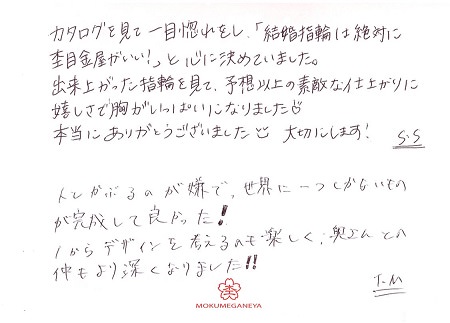 カタログを見て一目惚れをし、「結婚指輪は絶対に
杢目金屋がいい!」と心に決めていました。
出来上がった指輪を見て、予想以上の素敵な仕上がりに
嬉しさで胸がいっぱいになりました
本当にありがとうございました 大切にします!
S.S
人とかぶるのが嫌で、世界に一つしかないもの
が完成して良かった!
1からデザインを考えるのも楽しく、奥さんとの
仲もより深くなりました!!
T.M
MOKUMEGANEYA